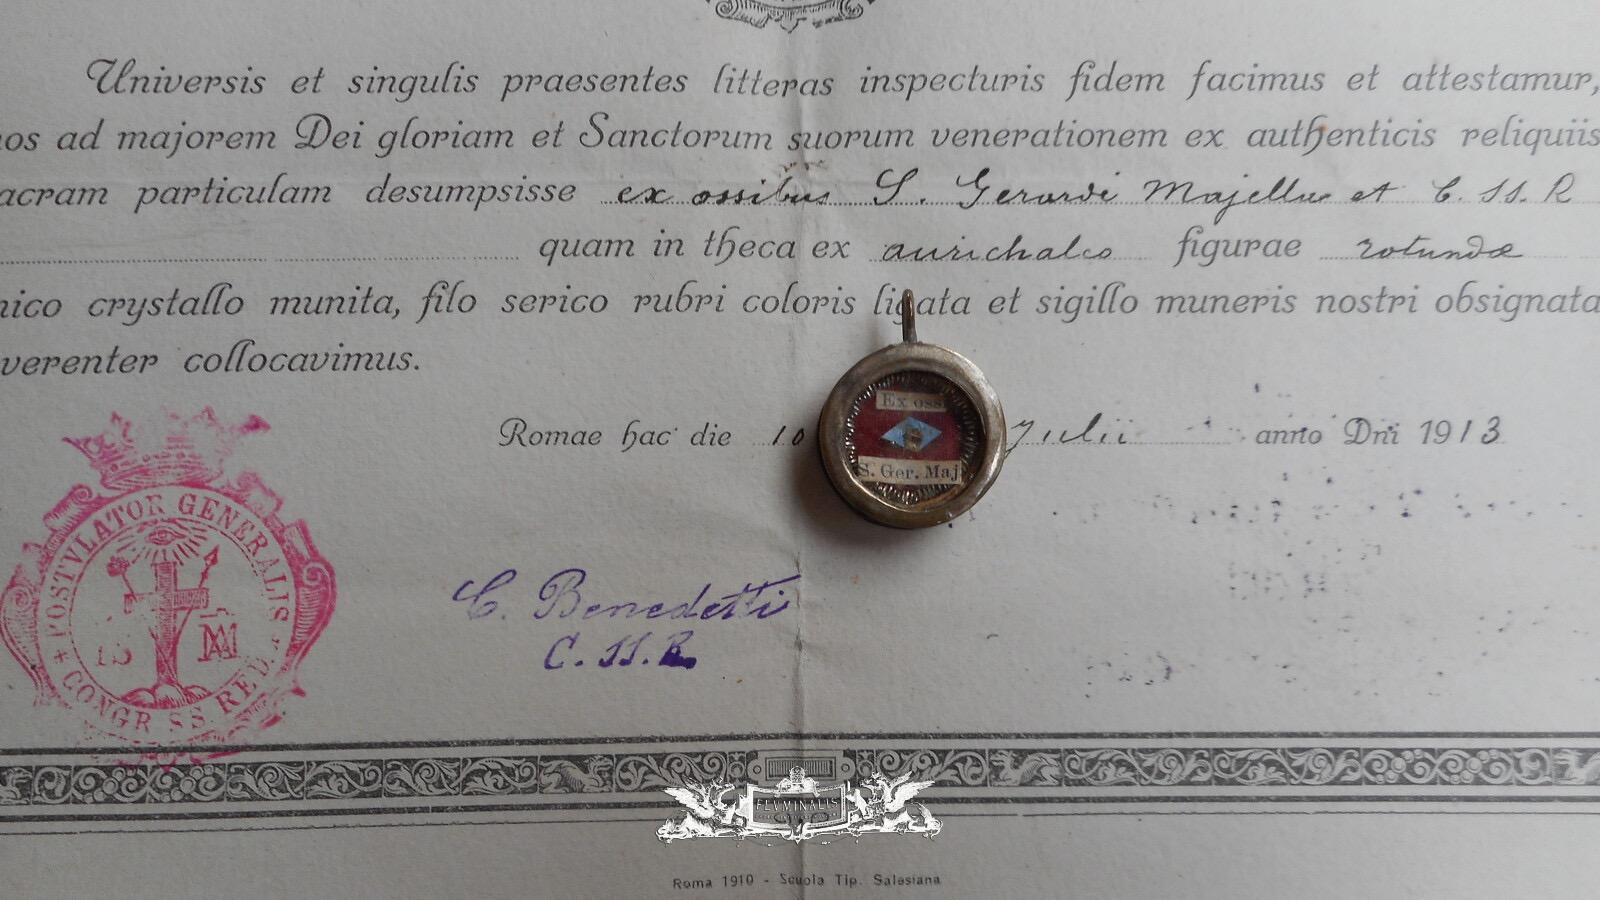 Universis et singulis praesentes litteras inspecturis fidem facimus et attestamur,
nos ad majorem Dei gloriam et Sanctorum suorum venerationem ex authenticis reliquiis
acram particulam desumpsisse ex ossibus S. Gerardi Majellae et C. SS. R
quam in theca ex aurichalco figurae rotundae
nico crystallo munita, filo serico rubri coloris ligata et sigillo muneris nostri obsignata
verenter collocavimus.
Romae hac die 10 Julii anno Dni 1913
Ex oss.
S. Ger. Maj
POSTVLATOR GENERALIS
+ CONGR SS. RED.
C. Benedetti
C. SS. R.
FLVMINALIS
Roma 1910 - Scuola Tip. Salesiana